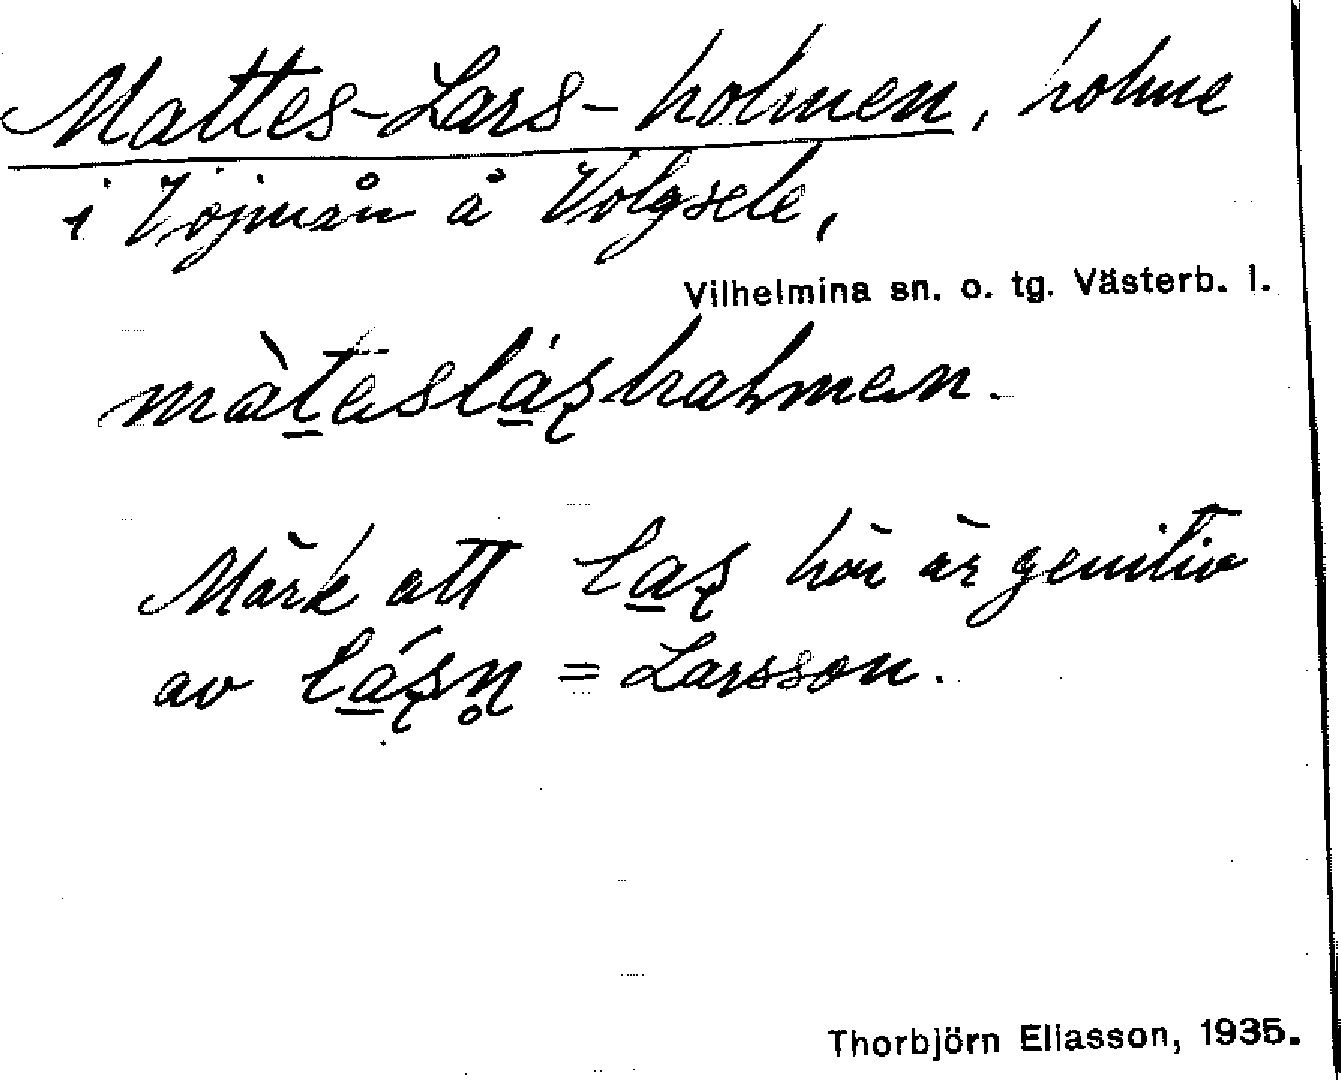 Mattes-Lars-holmen, holme
i Vojmån å Volgsele,
Vilhelmina sn. o. tg. Västerb. l.
màt̠asla̠ʂhaɬmen.
Märk att la̠ʂ här är genitiv
av lá̠ʂn̥ = Larsson.
Thorbjörn Eliasson, 1935.